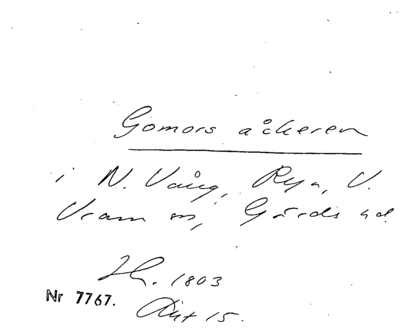 Gomors åckeren
i N. Vång, Rya, V.
Vram sn, Gärds hd
1803
Nr 7767. Akt 15.